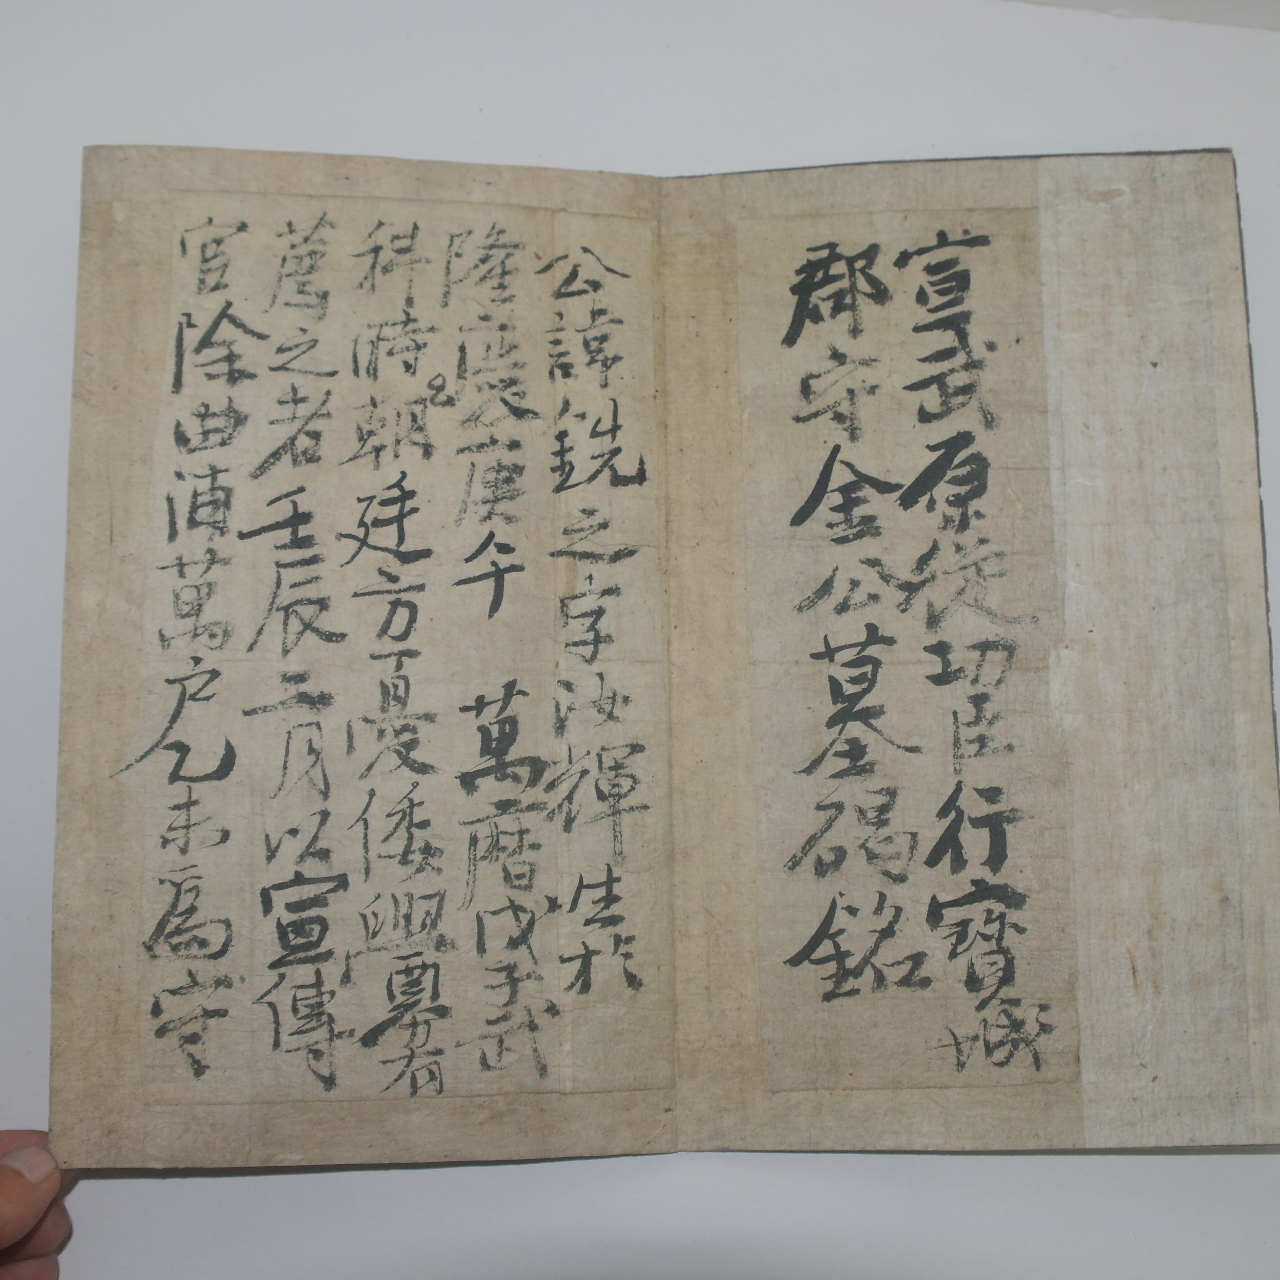 宣武原從功臣行寶城
郡守金公墓碣銘
公諱銑之字汝輝生於
隆慶庚午 萬曆戊子武
科時朝廷方憂倭興 有
薦之者壬辰二月以宣傳
官除曲浦萬戶乙未爲守